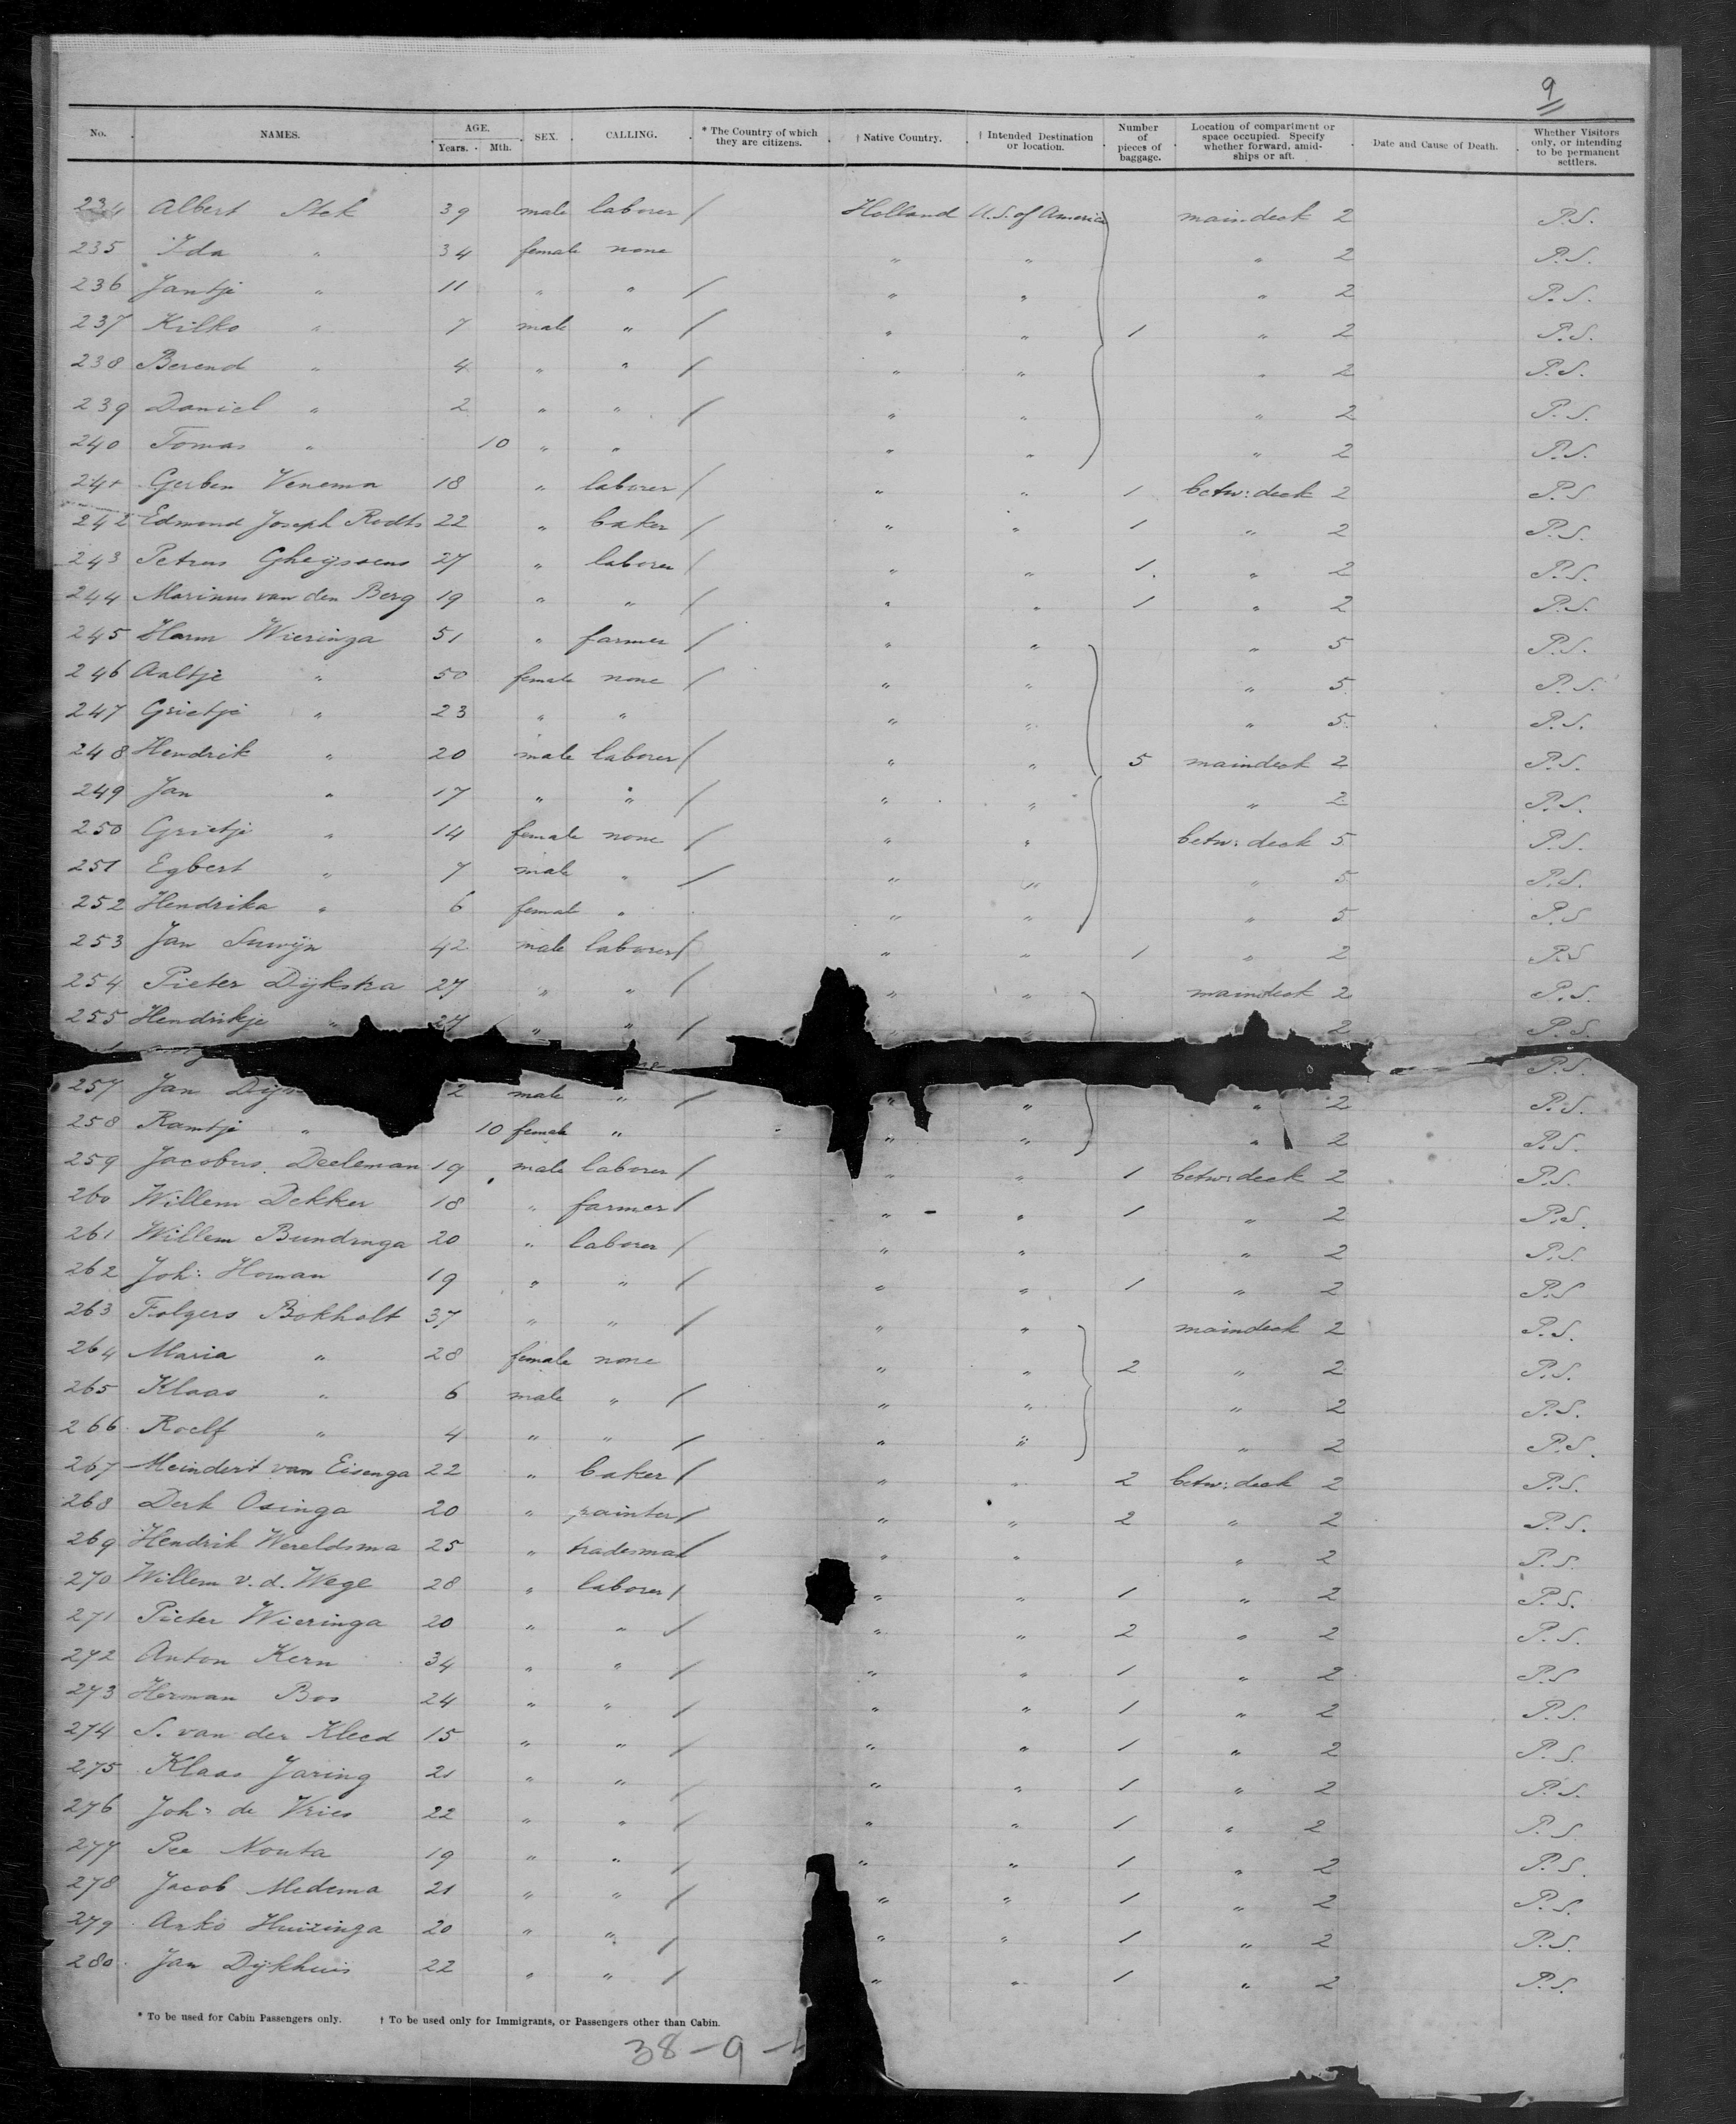 9
No. NAMES. AGE. Years. Mth. SEX. CALLING. * The Country of which they are citizens. † Native Country. † Intended Destination or location. Number of pieces of baggage. Location of compartment or space occupied. Specify whether forward, amid-ships or aft. Date and Cause of Death. Whether Visitors only, or intending to be permanent settlers.
234 Albert Stek 39 male laborer / Holland U.S. of America maindeck 2 P.S.
235 Ida " 34 female none " " " 2 P.S.
236 Jantje " 11 " " / " " " 2 P.S.
237 Kilko " 7 male " / " " 1 " 2 P.S.
238 Berend " 4 " " / " " " 2 P.S.
239 Daniel " 2 " " / " " " 2 P.S.
240 Tomas " 10 " " " " " 2 P.S.
241 Gerben Venema 18 " laborer / " " 1 betw: deck 2 P.S
242 Edmond Joseph Rodts 22 " baker / " " 1 " 2 P.S.
243 Petrus Gheyssens 27 " laborer / " " 1. " 2 P.S.
244 Marinus van den Berg 19 " " / " " 1 " 2 P.S.
245 Harm Wieringa 51 " farmer / " " " 5 P.S.
246 Aaltje " 50 female none / " " " 5 P.S.
247 Grietje " 23 " " " " " 5 P.S.
248 Hendrik " 20 male laborer / " " 5 maindeck 2 P.S.
249 Jan " 17 " " / " " " 2 P.S.
250 Grietje " 14 female none / " " betw: deck 5 P.S.
251 Egbert " 7 male " / " " " 5 P.S.
252 Hendrika " 6 female " " " " 5 P.S
253 Jan Suwijn 42 male laborer / " " 1 " 2 P.S
254 Pieter Dijkstra 27 " " / " " maindeck 2 P.S.
255 Hendrikje " 27 " " / " 2 P.S.
P.S.
257 Jan 2 male " / " " " 2 P.S.
258 Ramtje " 10 female " " " " 2 P.S.
259 Jacobus Deeleman 19 male laborer / " " 1 betw: deck 2 P.S.
260 Willem Dekker 18 " farmer / " " 1 " 2 P.S.
261 Willem Bundinga 20 " laborer / " " " 2 P.S.
262 Joh: Homan 19 " " / " " 1 " 2 P.S
263 Folgers Bokholt 37 " " / " " maindeck 2 P.S.
264 Maria " 28 female none " " 2 " 2 P.S.
265 Klaas " 6 male " / " " " 2 P.S.
266 Roelf " 4 " " / " " " 2 P.S.
267 Meindert van Eisenga 22 " baker / " " 2 betw: deck 2 P.S.
268 Derk Osinga 20 " painter / " " 2 " 2 P.S.
269 Hendrik Wereldsma 25 " tradesman / " " " 2 P.S.
270 Willem v.d. Wege 28 " laborer / " " 1 " 2 P.S.
271 Pieter Wieringa 20 " " / " " 2 " 2 P.S.
272 Anton Kern 34 " " / " " 1 " 2 P.S
273 Herman Bos 24 " " / " " 1 " 2 P.S.
274 S. van der Kleed 15 " " / " " 1 " 2 P.S.
275 Klaas Jaring 21 " " / " " 1 " 2 P.S.
276 Joh: de Vries 22 " " / " " 1 " 2 P.S.
277 Pee Nouta 19 " " / " " 1 " 2 P.S.
278 Jacob Medema 21 " " / " " 1 " 2 P.S.
279 Arko Huizinga 20 " " / " " 1 " 2 P.S.
280 Jan Dijkhuis 22 " " / " " 1 " 2 P.S.
* To be used for Cabin Passengers only. † To be used only for Immigrants, or Passengers other than Cabin.
38-9-